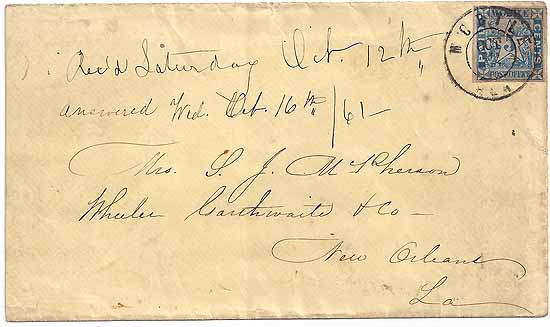 Rec'd Saturday Oct. 12th
answered Wed. Oct. 16th /61-
Mrs. S. J. McPherson
Wheeler Garthwaite & Co -
New Orleans
La
MOBILE
OCT
ALA
5
CENTS
POST OFFICE